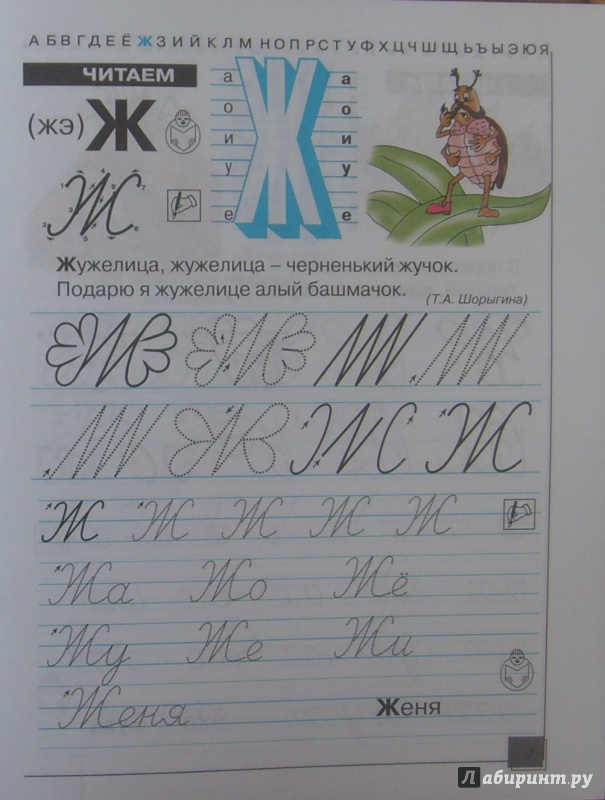 А Б В Г Д Е Ё Ж З И Й К Л М Н О П Р С Т У Ф Х Ц Ч Ш Щ Ь Ъ Ы Э Ю Я
ЧИТАЕМ
(жэ) Ж
а Ж а
о о
и и
у у
е е
Ж
Жужелица, жужелица – черненький жучок.
Подарю я жужелице алый башмачок.
(Т.А. Шорыгина)
Ж Ж
Ж Ж Ж Ж Ж
Жа Жо Жё
Жу Же Жи
Женя Женя
7
Лабиринт.ру